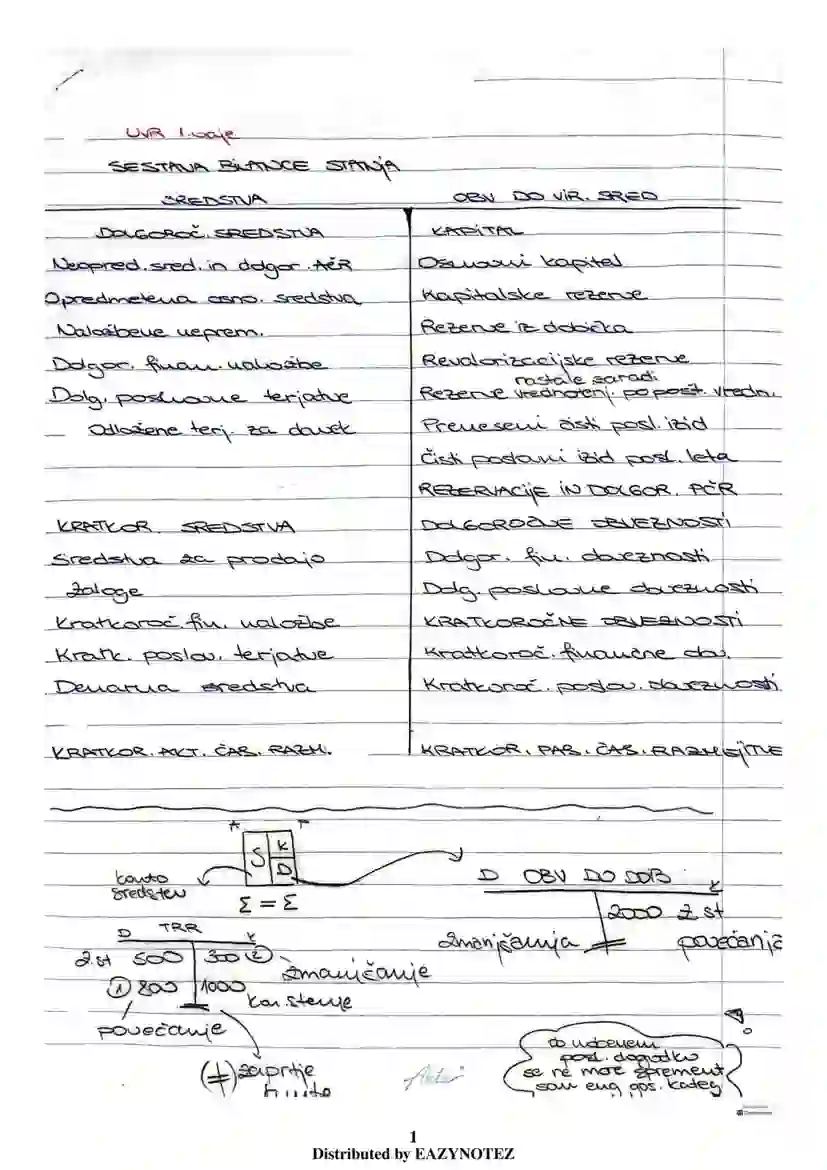 UVR 1. vaje
SESTAVA BILANCE STANJA
SREDSTVA
OBV DO VIR. SRED
DOLGOROČ. SREDSTVA
Neopred. sred. in dolgor. AČR
Opredmetena osno. sredstva
Naložbene neprem.
Dolgor. finan. naložbe
Dolg. poslovne terjatve
Odložene terj. za davek
KRATKOR. SREDSTVA
Sredstva za prodajo
Zaloge
Kratkoroč. fin. naložbe
Kratk. poslov. terjatve
Denarna sredstva
KRATKOR. AKT. ČAS. RAZM.
KAPITAL
Osnovni kapital
Kapitalske rezerve
Rezerve iz dobička
Revalorizacijske rezerve
nastale zaradi
Rezerve vrednotenj. po pošt. vredn.
Preneseni čisti posl. izid
Čisti poslovni izid posl. leta
REZERVACIJE IN DOLGOR. PČR
DOLGOROČNE OBVEZNOSTI
Dolgor. fin. obveznosti
Dolg. poslovne obveznosti
KRATKOROČNE OBVEZNOSTI
Kratkoroč. finančne obv.
Kratkoroč. poslov. obveznosti
KRATKOR. PAS. ČAS. RAZMEJITVE
A P
S K
D
Σ = Σ
konto
sredstev
D OBV DO DOB K
2000 Z. st
zmanjšanja povečanja
D TRR K
Z. st 500 300 2
zmanjčanje
1 800 1000
kon. stanje
povečanje
(≠) zaprtje
konta
ob nobenem
posl. dogodku
se ne more spremenit
sam eng gos. kateg
1
Distributed by EAZYNOTEZ